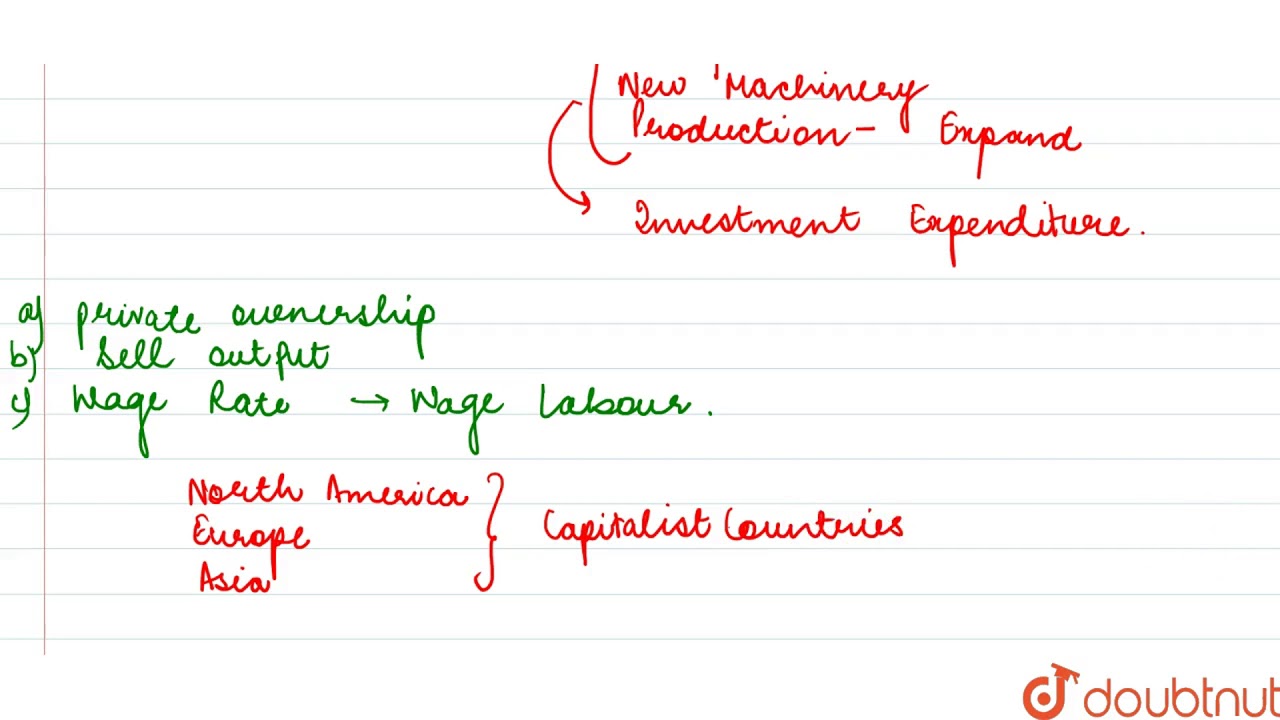 New Machinery
Production - Expand
Investment Expenditure.
a) private ownership
b) Sell output
c) Wage Rate → Wage Labour.
North America
Europe
Asia
Capitalist Countries
doubtnut